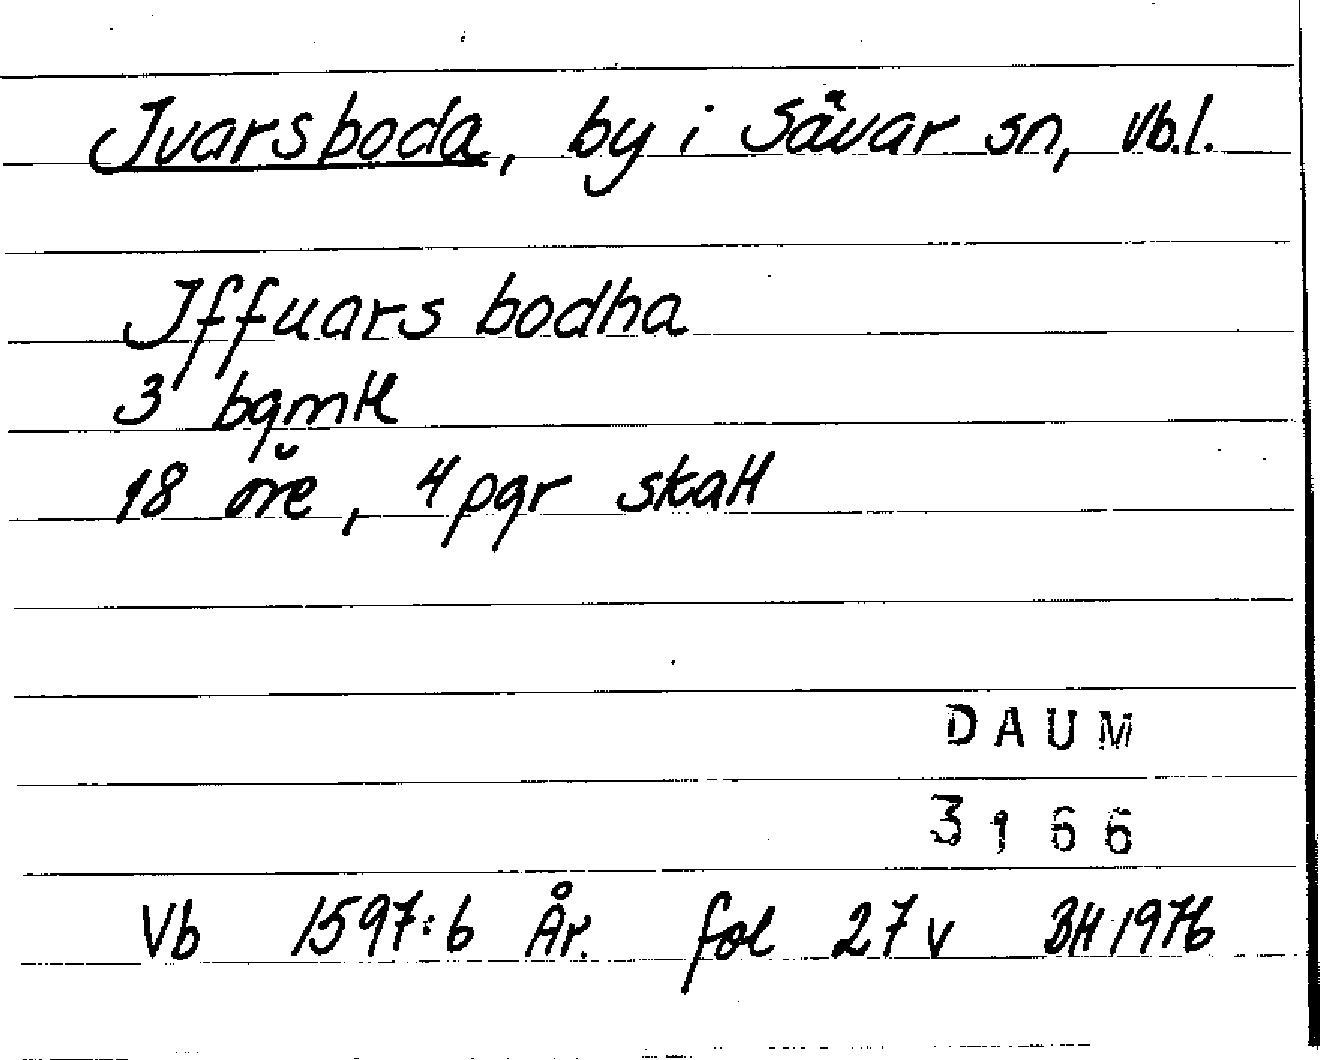 Ivarsboda, by i Sävar sn, Vb.l.
Iffuars bodha
3 bqmtl
18 öre, 4 pgr skatt
DAUM
3166
Vb 1597:6 År. fol 27 v BH 1976